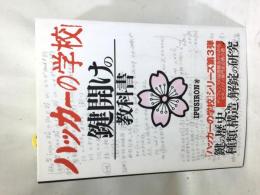 ハッカーの学校
鍵開けの
教科書
IPUSIRON 著
「ハッカーの学校」シリーズ第3弾
鍵の歴史
種類、構造、解錠の研究